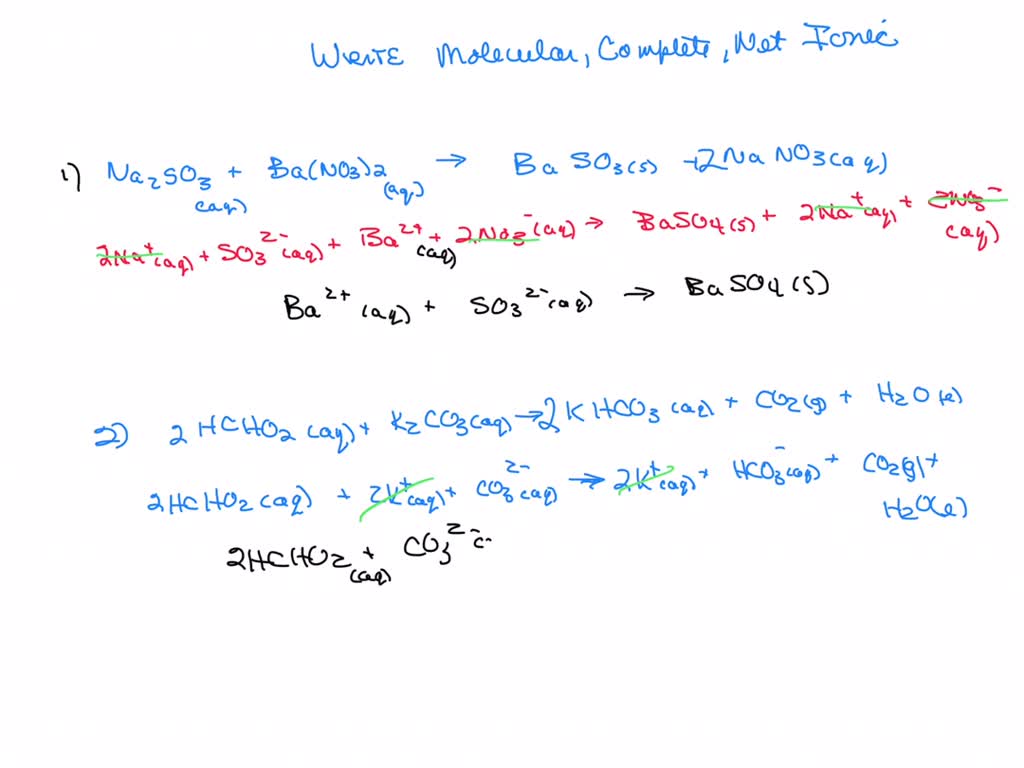 Write Molecular, Complete, Net Ionic
1) Na2SO3 (aq) + Ba(NO3)2 (aq) → BaSO3(s) + 2NaNO3(aq)
2Na+(aq) + SO3 2-(aq) + Ba2+(aq) + 2NO3-(aq) → BaSO4(s) + 2Na+(aq) + 2NO3-(aq)
Ba2+(aq) + SO3 2-(aq) → BaSO4(s)
2) 2HCHO2(aq) + K2CO3(aq) → 2KHCO3(aq) + CO2(g) + H2O(l)
2HCHO2(aq) + 2K+(aq) + CO3 2-(aq) → 2K+(aq) + HCO3-(aq) + CO2(g) + H2O(l)
2HCHO2(aq) + CO3 2-